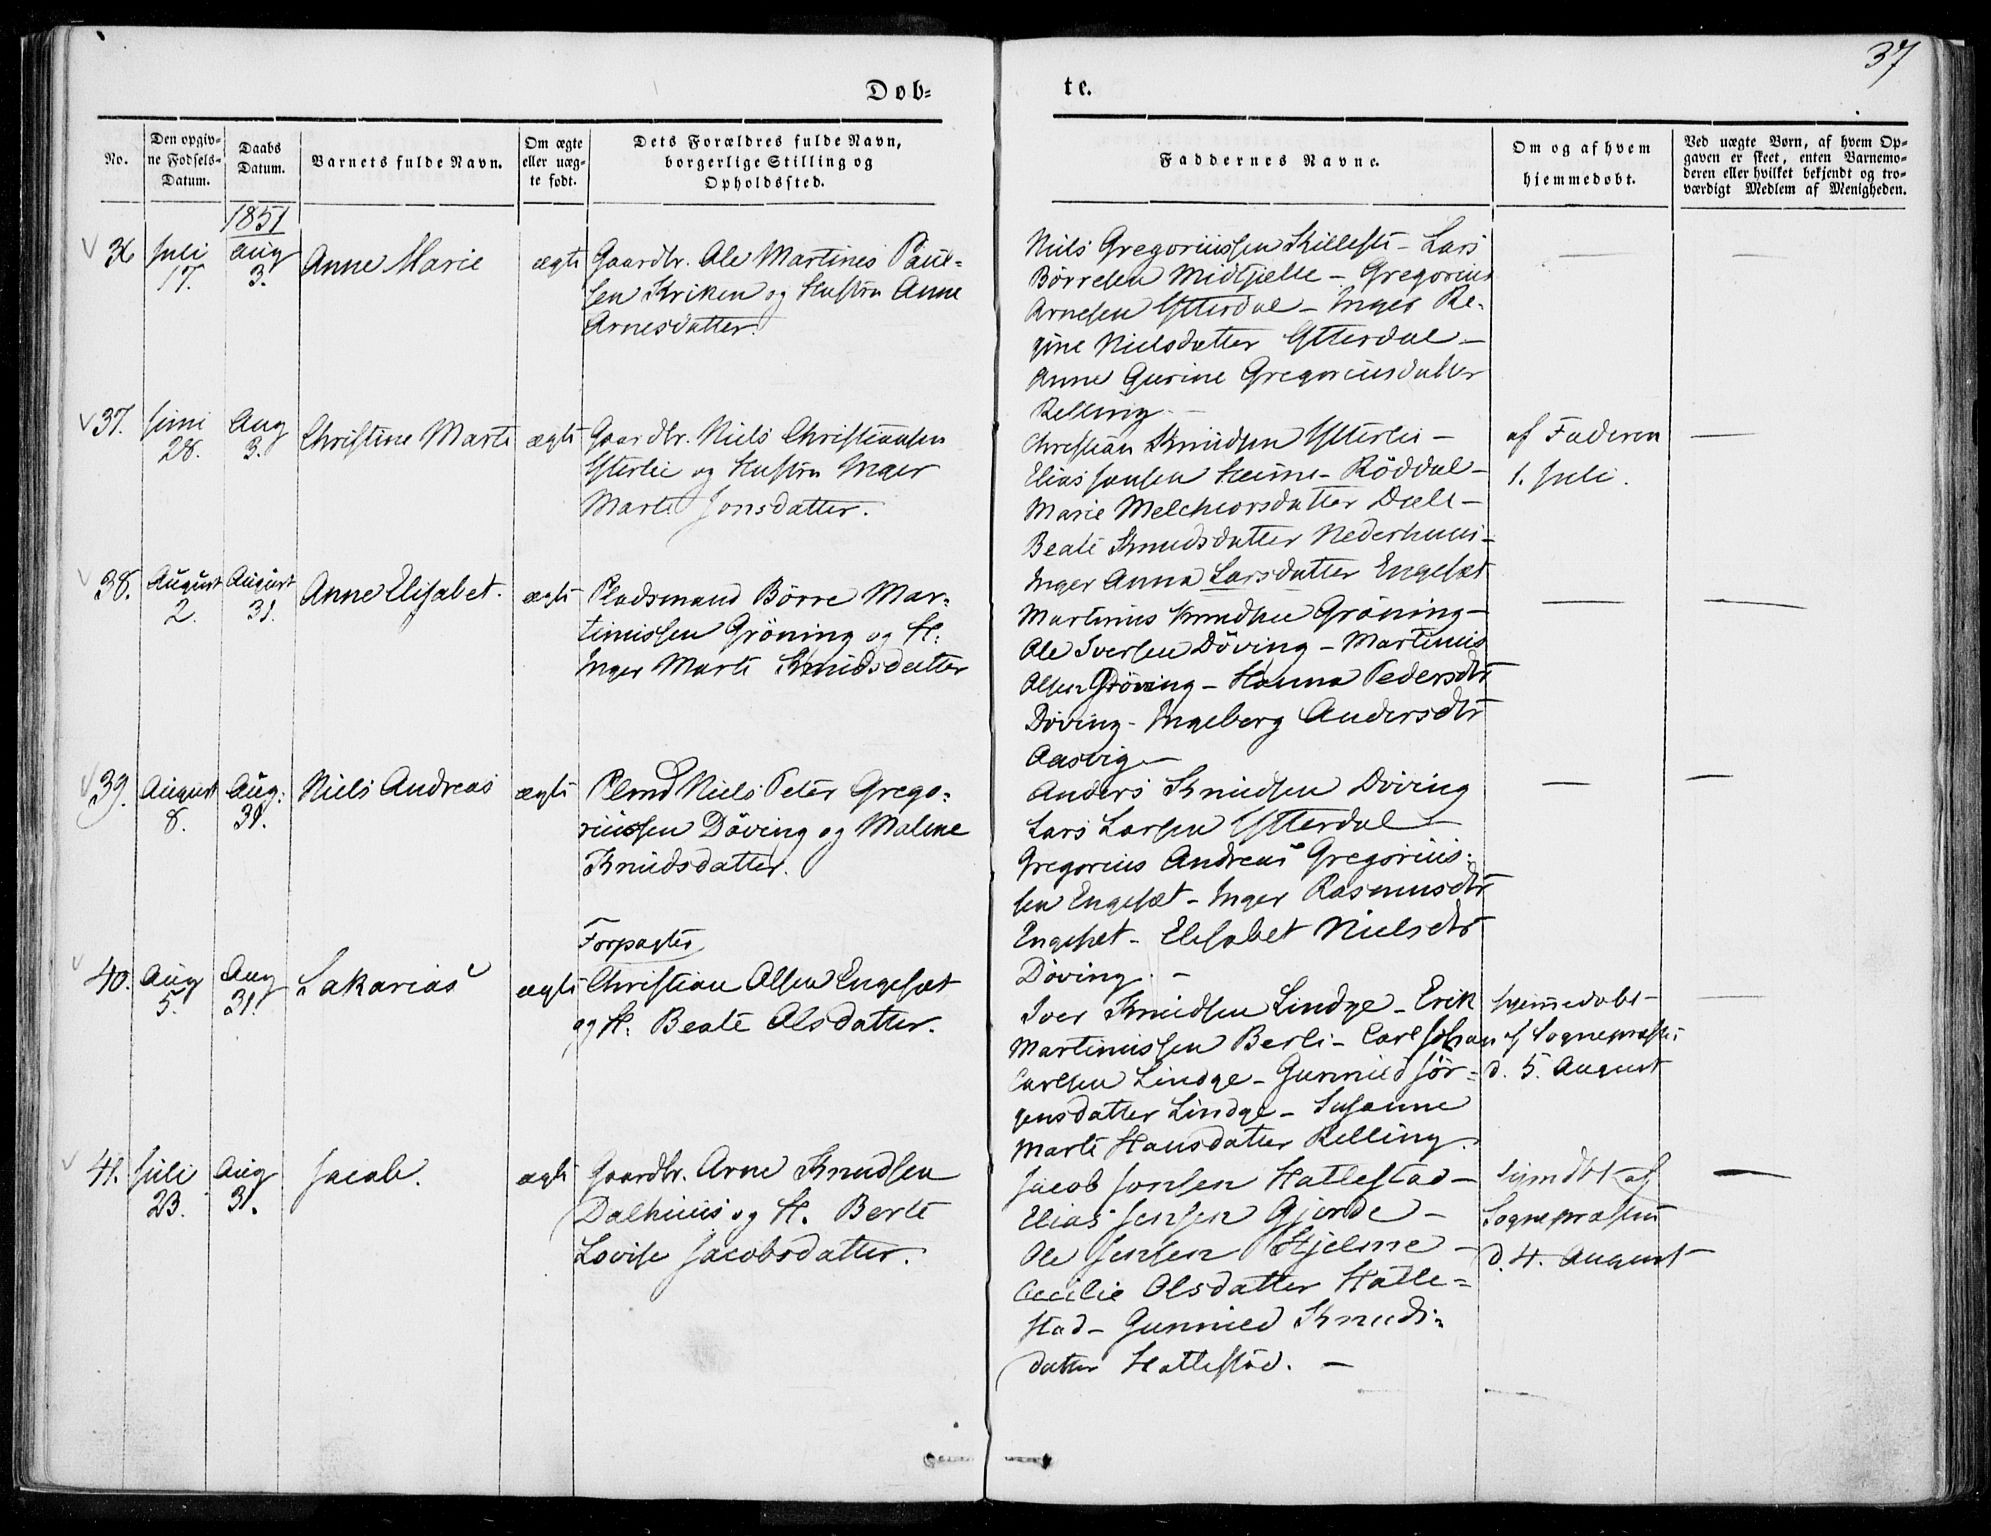 37
Døb-
te.
No.
Den opgiv-
ne Fødsels-
Datum.
Daabs
Datum.
Barnets fulde Navn.
Om ægte
eller uæg-
te født.
Dets Forældres fulde Navn,
borgerlige Stilling og
Opholdssted.
Faddernes Navne.
Om og af hvem
hjemmedøbt.
Ved uægte Børn, af hvem Op-
gaven er skeet, enten Barnemo-
deren eller hvilket bekjendt og tro-
værdigt Medlem af Menigheden.
1851
36
Juli
17.
Aug
3.
Anne Marie
ægte
Gaardbr. Ole Martines Paul-
sen Kriken og Hustru Anne
Arnesdatter.
Niels Gregoriussen Killesti - Lars
Børresen Midtfjelle - Gregorius
Arnesen Ytterdal - Inger Re-
gine Nielsdatter Ytterdal -
Anne Gurine Gregoriusdatter
Relling -
37.
Juni
28.
Aug
3.
Christine Marte
ægte
Gaardbr. Niels Christiansen
Ytterlie og Hustru Inger
Marte Jonsdatter.
Christian Knudsen Ytterlie -
Elias Jonsen - Röddal -
Marie Melchiorsdatter Dale -
Beate Knudsdatter Nederhuus -
Inger Anna Larsdatter Engeset
af Faderen
1. Juli.
38.
August
2.
August
31.
Anne Elisabet.
ægte
Pladsmand Börre Mar-
tinussen Gröning og H.
Inger Marte Knudsdatter
Martinus Knudsen Gröning -
Ole Iversen Döving - Martinus
Olsen Gröning - Hanna Pedersdtr
Döving - Ingeberg Andersdtr
Aasvig -
39.
August
8.
Aug.
31.
Niels Andreas
ægte
Plmd Niels Peter Grego-
riussen Döving og Malene
Knudsdatter.
Anders Knudsen Döving
Lars Larsen Ytterdal -
Gregorius Andreas Gregorius-
sen Engeset - Inger Rasmusdtr
Engeset - Elisabet Nielsdtr
Döving. -
40.
Aug
5.
Aug
31.
Sakarias
ægte
Forpagter
Christian Olsen Engeset
og H. Beate Olsdatter.
Iver Knudsen Lindge - Erik
Martinussen Berli - Carl Johan
Carlsen Lindge - Gunnild Jör-
gensdatter Lindge - Susanne
Marte Hansdatter Relling.
hjemmedøbt
af Sognepræsten
d. 5. August
41.
Juli
23.
Aug
31.
Jacob.
ægte
Gaardbr. Arne Knudsen
Dalhuus og H. Berte
Lovise Jacobsdatter.
Jacob Jonsen Hattestad -
Elias Jensen Gjerde -
Ole Jensen Hjelme -
Cecilie Olsdatter Hatle-
stad - Gunnild Knuds-
datter Hatlestad. -
hjmdbt af
Sognepræsten
d. 4. August